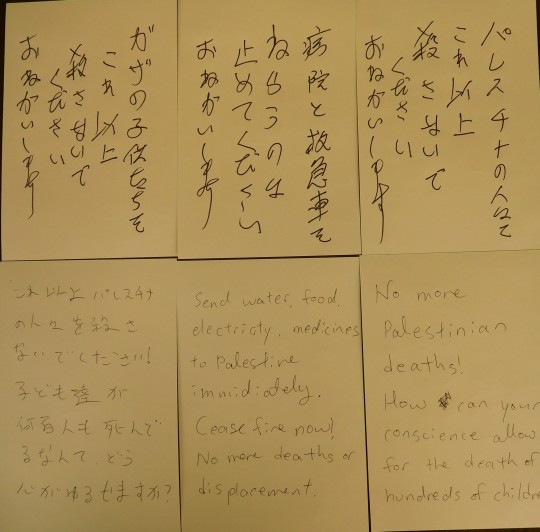 ガザの子供たちを
これ以上
殺さないで
ください
おねがいします
病院と救急車を
ねらうのは
止めてください
おねがいします
パレスチナの人々を
これ以上
殺さないで
ください
おねがいします
これ以上パレスチナ
の人々を殺さ
ないでください!
子ども達が
何百人も死んで
るなんて、どう
心がゆるせますか?
Send water, food,
electricty, medicines
to Palestine
immidiately.
Cease fire now!
No more deaths or
displacement.
No more
Palestinian
deaths!
How can your
conscience allow
for the death of
hundreds of childre